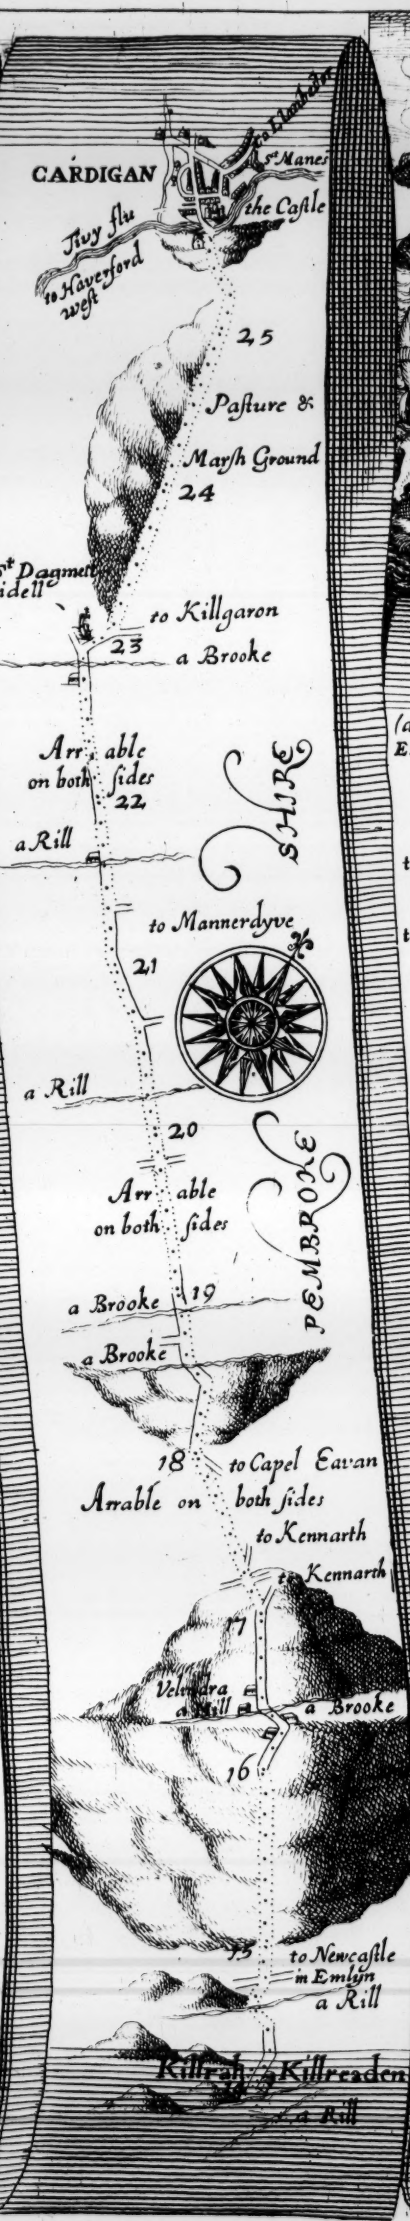 to Llanbeder
St Manes
CARDIGAN
the Castle
Tivy flu
to Haverford
west
25
Pasture &
Marsh Ground
24
St Dagmell
idell
to Killgaron
23
a Brooke
Arrable
on both sides
22
SHIRE
a Rill
to Mannerdyve
21
a Rill
20
PEMBROKE
Arrable
on both sides
19
a Brooke
a Brooke
18
to Capel Eavan
Arrable on both sides
to Kennarth
to Kennarth
17
a Mill
a Brooke
16
15
to Newcastle
in Emlyn
a Rill
Killrah
Killreaden
a Rill
(a
E
t
t